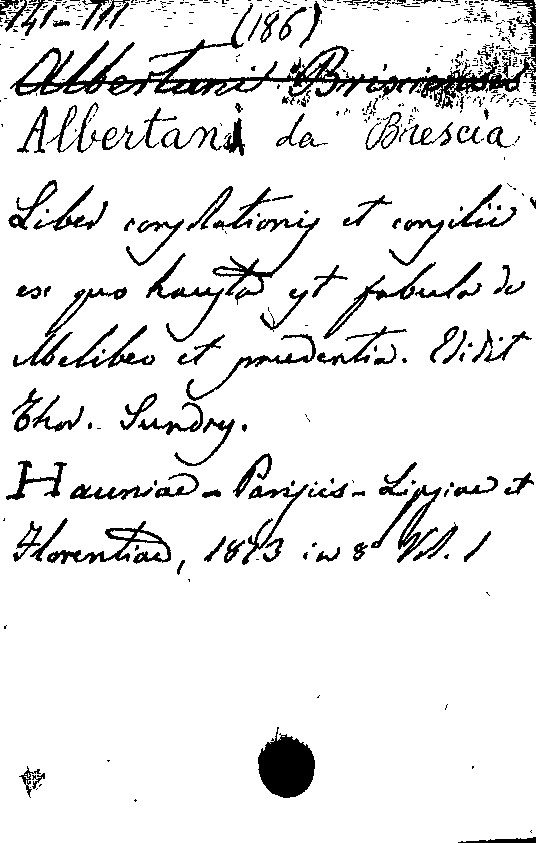 141-111 (186)
Albertani Brixiensis
Albertani da Brescia
Liber consolationis et consilii
ex quo hausta est fabula de
Melibeo et prudentia. Edidit
Thor. Sundby.
Hauniae - Parisiis - Lipsiae et
Florentiae, 1873 in 8º Vol. 1